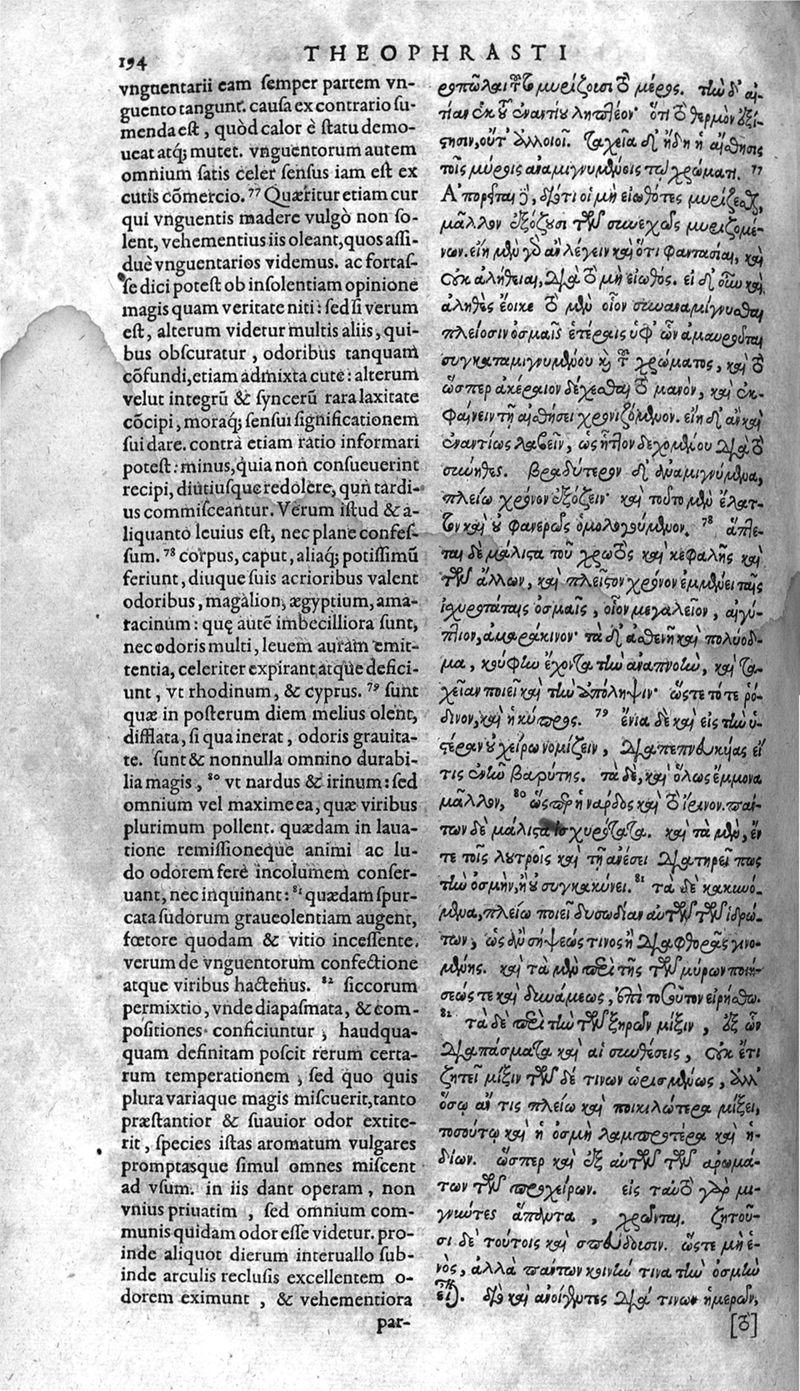 194 THEOPHRASTI
vnguentarii eam semper partem vn-
guento tangunt. causa ex contrario su-
menda est, quòd calor è statu demo-
ueat atq; mutet. vnguentorum autem
omnium satis celer sensus iam est ex
cutis cõmercio. 77 Quæritur etiam cur
qui vnguentis madere vulgò non so-
lent, vehementius iis oleant, quos assi-
duè vnguentarios videmus. ac fortas-
se dici potest ob insolentiam opinione
magis quam veritate niti: sed si verum
est, alterum videtur multis aliis, qui-
bus obscuratur, odoribus tanquam
cõfundi, etiam admixta cute: alterum
velut integrũ & syncerũ rara laxitate
cõcipi, moraq; sensui significationem
sui dare. contrà etiam ratio informari
potest: minus, quia non consueuerint
recipi, diutiusque redolere, quñ tardi-
us commisceantur. Verum istud & a-
liquanto leuius est, nec plane confes-
sum. 78 corpus, caput, aliaq; potissimũ
feriunt, diuque suis acrioribus valent
odoribus, magalion, ægyptium, ama-
racinum: quę autẽ imbecilliora sunt,
nec odoris multi, leuem auram emit-
tentia, celeriter expirant atque defici-
unt, vt rhodinum, & cyprus. 79 sunt
quæ in posterum diem melius olent,
difflata, si qua inerat, odoris grauita-
te. sunt & nonnulla omnino durabi-
lia magis, 80 vt nardus & irinum: sed
omnium vel maxime ea, quæ viribus
plurimum pollent. quædam in laua-
tione remissioneque animi ac lu-
do odorem ferè incolumem conser-
uant, nec inquinant: 81 quædam spur-
cata sudorum graueolentiam augent,
fœtore quodam & vitio incessente.
verum de vnguentorum confectione
atque viribus hactenus. 82 siccorum
permixtio, vnde diapasmata, & com-
positiones conficiuntur, haudqua-
quam definitam poscit rerum certa-
rum temperationem, sed quo quis
plura variaque magis miscuerit, tanto
præstantior & suauior odor extite-
rit, species istas aromatum vulgares
promptasque simul omnes miscent
ad vsum. in iis dant operam, non
vnius priuatim, sed omnium com-
munis quidam odor esse videtur. pro-
inde aliquot dierum interuallo sub-
inde arculis reclusis excellentem o-
dorem eximunt, & vehementiora
par-
ρεπῶλαι μυρίζουσι τὸ μέρος. τὴν δ' αἰ-
τίαν ἐκ τοῦ ἐναντίου ληπτέον· ὅτι τὸ θερμὸν ἐξί-
στησιν, οὔτ' ἀλλοιοῖ. ταχεῖα δ' ἤδη ἡ αἴσθησις
τοῖς μύροις ἀναμιγνυμένοις τῷ χρώματι. 77
Ἀπορεῖται δὲ, διότι οἱ μὴ εἰωθότες μυρίζεσθαι,
μᾶλλον ἐξόζουσι τῶν συνεχῶς μυριζομέ-
νων. εἴη μὲν γὰρ ἂν λέγειν καὶ ὅτι φαντασίαι, καὶ
οὐκ ἀλήθειαι, διὰ τὸ μὴ εἰωθός. εἰ δ' οὖν καὶ
ἀληθὲς ἔοικε τὸ μὲν οἷον συναναμίγνυσθαι
πλείοσιν ὀσμαῖς ἑτέραις ὑφ' ὧν ἀμαυροῦται
συγκαταμιγνυμένου καὶ τοῦ χρώματος, καὶ τὸ
ὥσπερ ἀκέραιον δέχεσθαι τὸ μανὸν, καὶ ἐκ-
φαίνειν τῇ αἰσθήσει χρονιζόμενον. εἴη δ' ἂν καὶ
ἐναντίως λαβεῖν, ὡς ἧττον δεχομένου διὰ τὸ
σύνηθες. βραδύτερον δ' ἀναμιγνύμενα,
πλείω χρόνον ἐξόζειν· καὶ τοῦτο μὲν ἔλατ-
τον καὶ οὐ φανερῶς ὁμολογούμενον. 78 ἅπτε-
ται δὲ μάλιστα τοῦ χρωτὸς καὶ κεφαλῆς καὶ
τῶν ἄλλων, καὶ πλεῖστον χρόνον ἐμμένει ταῖς
ἰσχυροτάταις ὀσμαῖς, οἷον μεγαλεῖον, αἰγύ-
πτιον, ἀμαράκινον· τὰ δ' ἀσθενῆ καὶ πολύοδ-
μα, κούφην ἔχοντα τὴν ἀναπνοὴν, καὶ τα-
χεῖαν ποιεῖ καὶ τὴν ἀπόληψιν· ὥστε τότε ῥό-
δινον, καὶ ἡ κύπρος. 79 ἔνια δὲ καὶ εἰς τὴν ὑ-
στέραν οὐ χείρω νομίζειν, διαπεπνευκυίας εἴ
τις ἐνῆν βαρύτης. τὰ δὲ, καὶ ὅλως ἔμμονα
μᾶλλον, 80 ὥσπερ ἡ νάρδος καὶ τὸ ἴρινον. πάν-
των δὲ μάλιστα ἰσχυρότατα. καὶ τὰ μὲν, ἔν
τε τοῖς λουτροῖς καὶ τῇ ἀνέσει διατηρεῖ πως
τὴν ὀσμὴν, ἢ οὐ συγκακύνει. 81 τὰ δὲ κακυνό-
μενα, πλείω ποιεῖ δυσωδίαν αὐτῶν τῶν ἱδρώ-
των, ὡς ἂν σήψεώς τινος ἢ διαφθορᾶς γινο-
μένης. καὶ τὰ μὲν περὶ τῆς τῶν μύρων ποιή-
σεώς τε καὶ δυνάμεως, ἐπὶ τοσοῦτον εἰρήσθω.
82 τὰ δὲ περὶ τὴν τῶν ξηρῶν μίξιν, ἐξ ὧν
διαπάσματα καὶ αἱ συνθέσεις, οὐκ ἔτι
ζητεῖ μίξιν τῶν δέ τινων ὡρισμένως, ἀλλ'
ὅσῳ ἄν τις πλείω καὶ ποικιλώτερα μίξει,
τοσούτῳ καὶ ἡ ὀσμὴ λαμπροτέρα καὶ ἡ-
δίων. ὥσπερ καὶ ἐξ αὐτῶν τῶν ἀρωμά-
των τῶν προχείρων. εἰς ταὐτὸ γὰρ μι-
γνύντες ἅπαντα, χρῶνται. ζητοῦ-
σι δὲ τούτοις καὶ σπεύδουσιν. ὥστε μὴ ἑ-
νὸς, ἀλλὰ πάντων κοινήν τινα τὴν ὀσμὴν
εἶναι. διὸ καὶ ἀνοίγοντες διά τινων ἡμερῶν,
[τὸ]